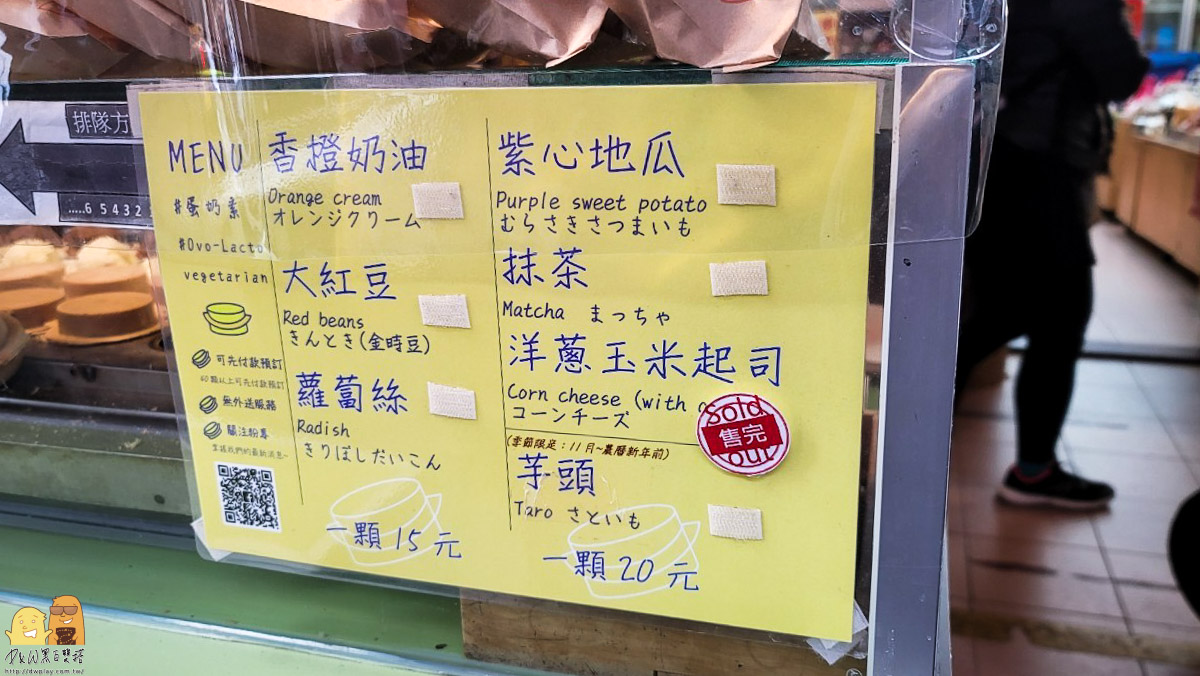 排隊方
.....6 5 4 3 2
MENU
#蛋奶素
#Ovo-Lacto
vegetarian
可先付款預訂
60顆以上可先付款預訂
無外送服務
關注粉專
掌握我們的最新消息~
香橙奶油
Orange cream
オレンジクリーム
大紅豆
Red beans
きんとき(金時豆)
蘿蔔絲
Radish
きりぼしだいこん
一顆15元
紫心地瓜
Purple sweet potato
むらさきさつまいも
抹茶
Matcha まっちゃ
洋蔥玉米起司
Corn cheese (with
コーンチーズ
Sold
售完
out
(季節限定：11月~農曆新年前)
芋頭
Taro さといも
一顆20元
D&W黑白雙搭
http://dwplay.com.tw/